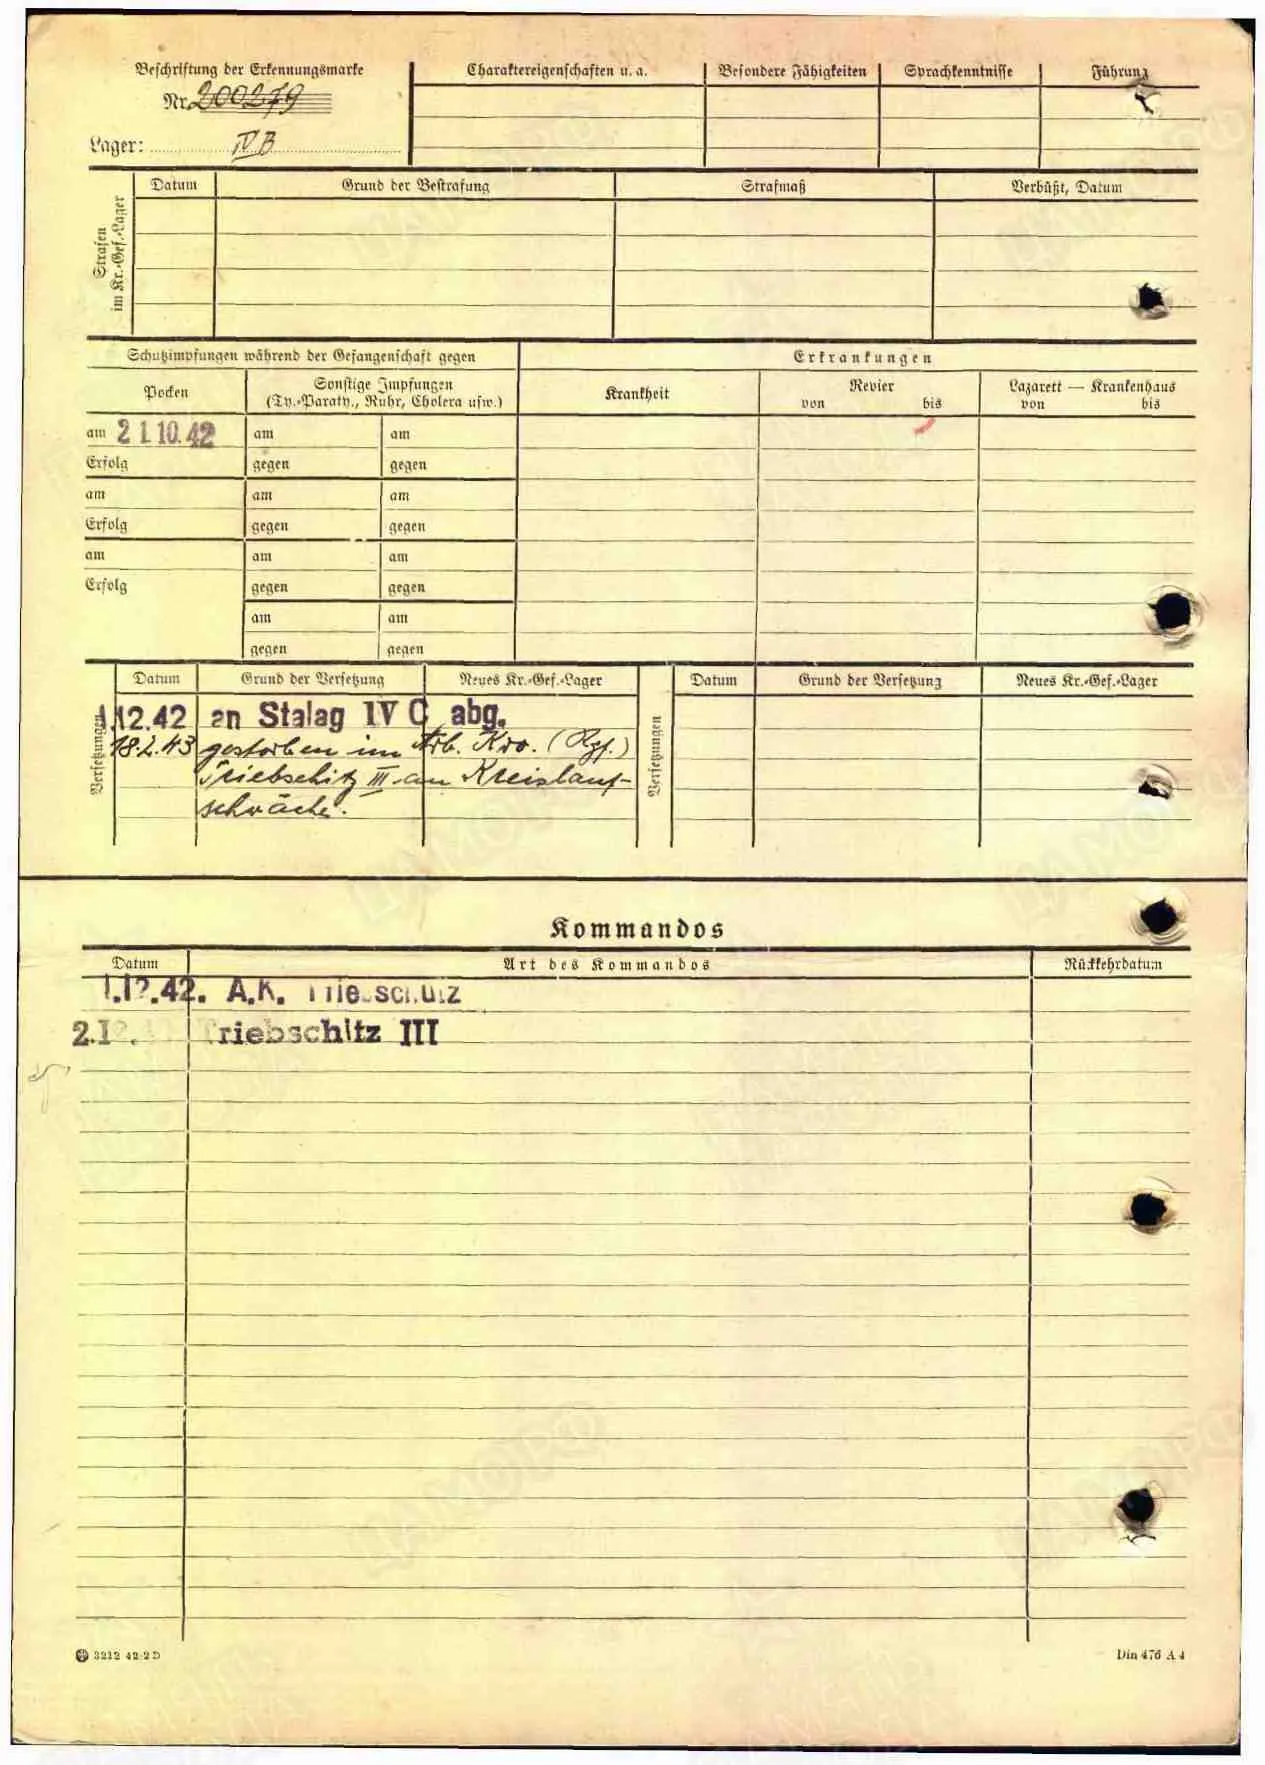 Beschriftung der Erkennungsmarke
Nr. 200279
Lager: IV B
Charaktereigenschaften u. a. Besondere Fähigkeiten Sprachkenntnisse Führung
Strafen im Kr.-Gef.-Lager
Datum Grund der Bestrafung Strafmaß Verbüßt, Datum
Schutzimpfungen während der Gefangenschaft gegen
Erkrankungen
Pocken
Sonstige Impfungen
(Ty.-Paraty., Ruhr, Cholera usw.)
Krankheit
Revier
von bis
Lazarett — Krankenhaus
von bis
am 21.10.42 am am
Erfolg gegen gegen
am am am
Erfolg gegen gegen
am am am
Erfolg gegen gegen
am am
gegen gegen
Versetzungen
Datum Grund der Versetzung Neues Kr.-Gef.-Lager
1.12.42 an Stalag IV C abg.
18.2.43 gestorben im Arb. Kdo. (Kgf.)
Triebschitz III an Kreislauf-
schwäche.
Versetzungen
Datum Grund der Versetzung Neues Kr.-Gef.-Lager
Kommandos
Datum Art des Kommandos Rückkehrdatum
1.12.42. A.K. Triebschitz
Triebschitz III
3212 42 2 D
Din 476 A 4
ЦАМО РФ